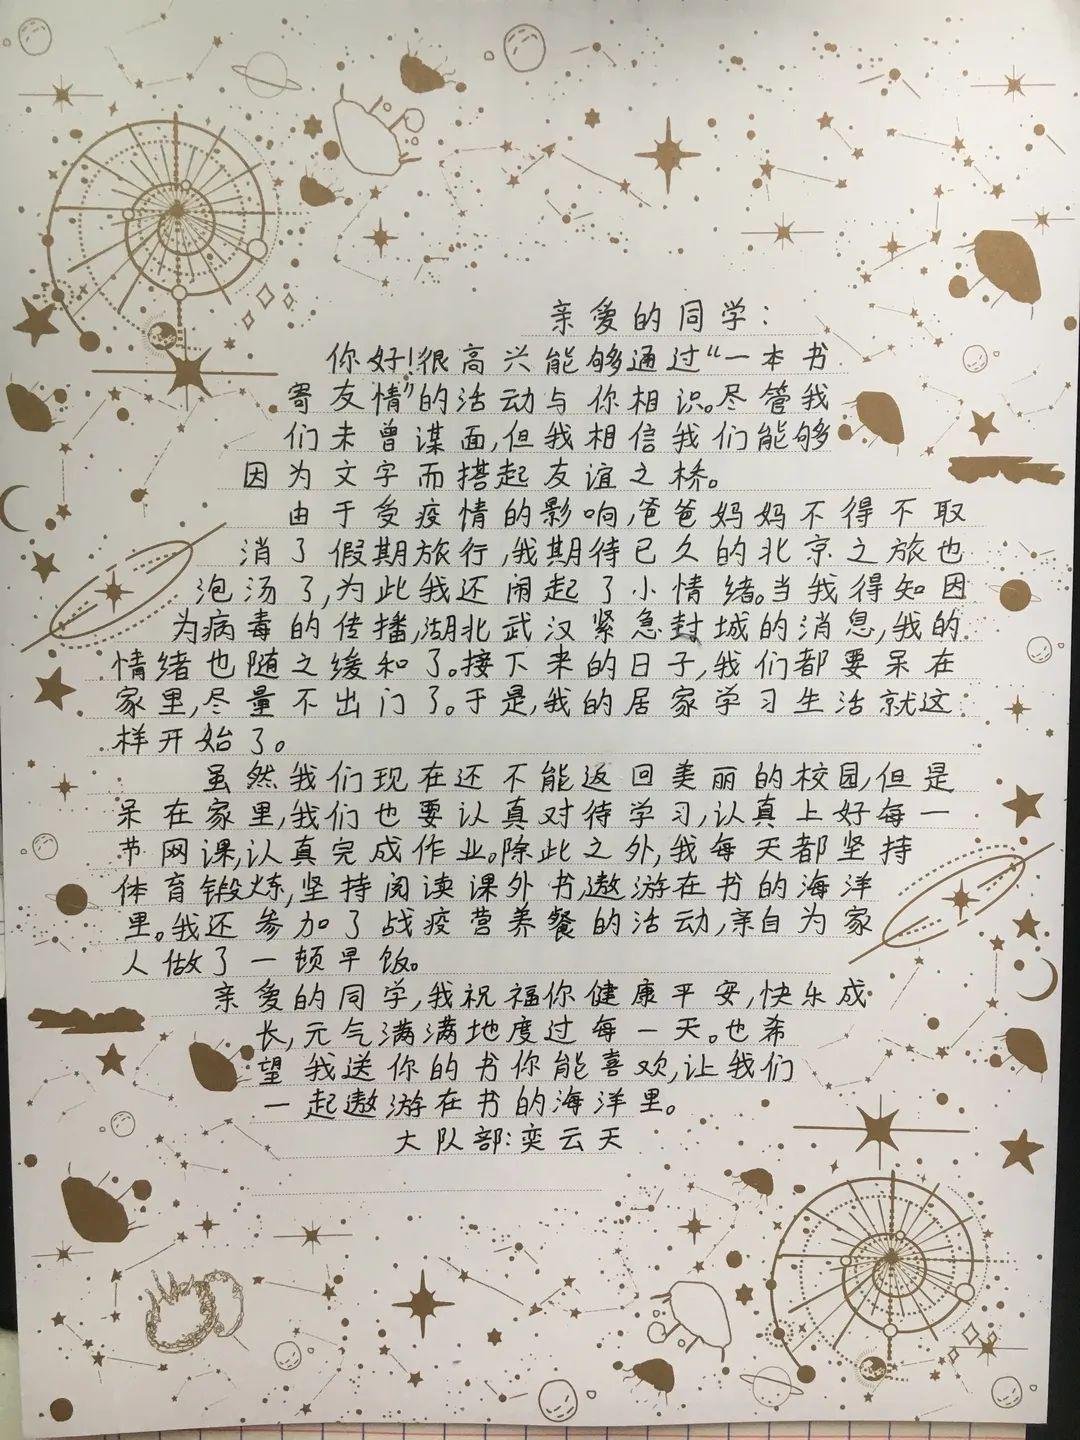 亲爱的同学：
你好！很高兴能够通过“一本书
寄友情”的活动与你相识。尽管我
们未曾谋面，但我相信我们能够
因为文字而搭起友谊之桥。
由于受疫情的影响，爸爸妈妈不得不取
消了假期旅行，我期待已久的北京之旅也
泡汤了，为此我还闹起了小情绪。当我得知因
为病毒的传播，湖北武汉紧急封城的消息，我的
情绪也随之缓和了。接下来的日子，我们都要呆在
家里，尽量不出门了。于是，我的居家学习生活就这
样开始了。
虽然我们现在还不能返回美丽的校园，但是
呆在家里，我们也要认真对待学习，认真上好每一
节网课，认真完成作业。除此之外，我每天都坚持
体育锻炼，坚持阅读课外书，遨游在书的海洋
里。我还参加了战疫营养餐的活动，亲自为家
人做了一顿早饭。
亲爱的同学，我祝福你健康平安，快乐成
长，元气满满地度过每一天。也希
望我送你的书你能喜欢，让我们
一起遨游在书的海洋里。
大队部：奕云天